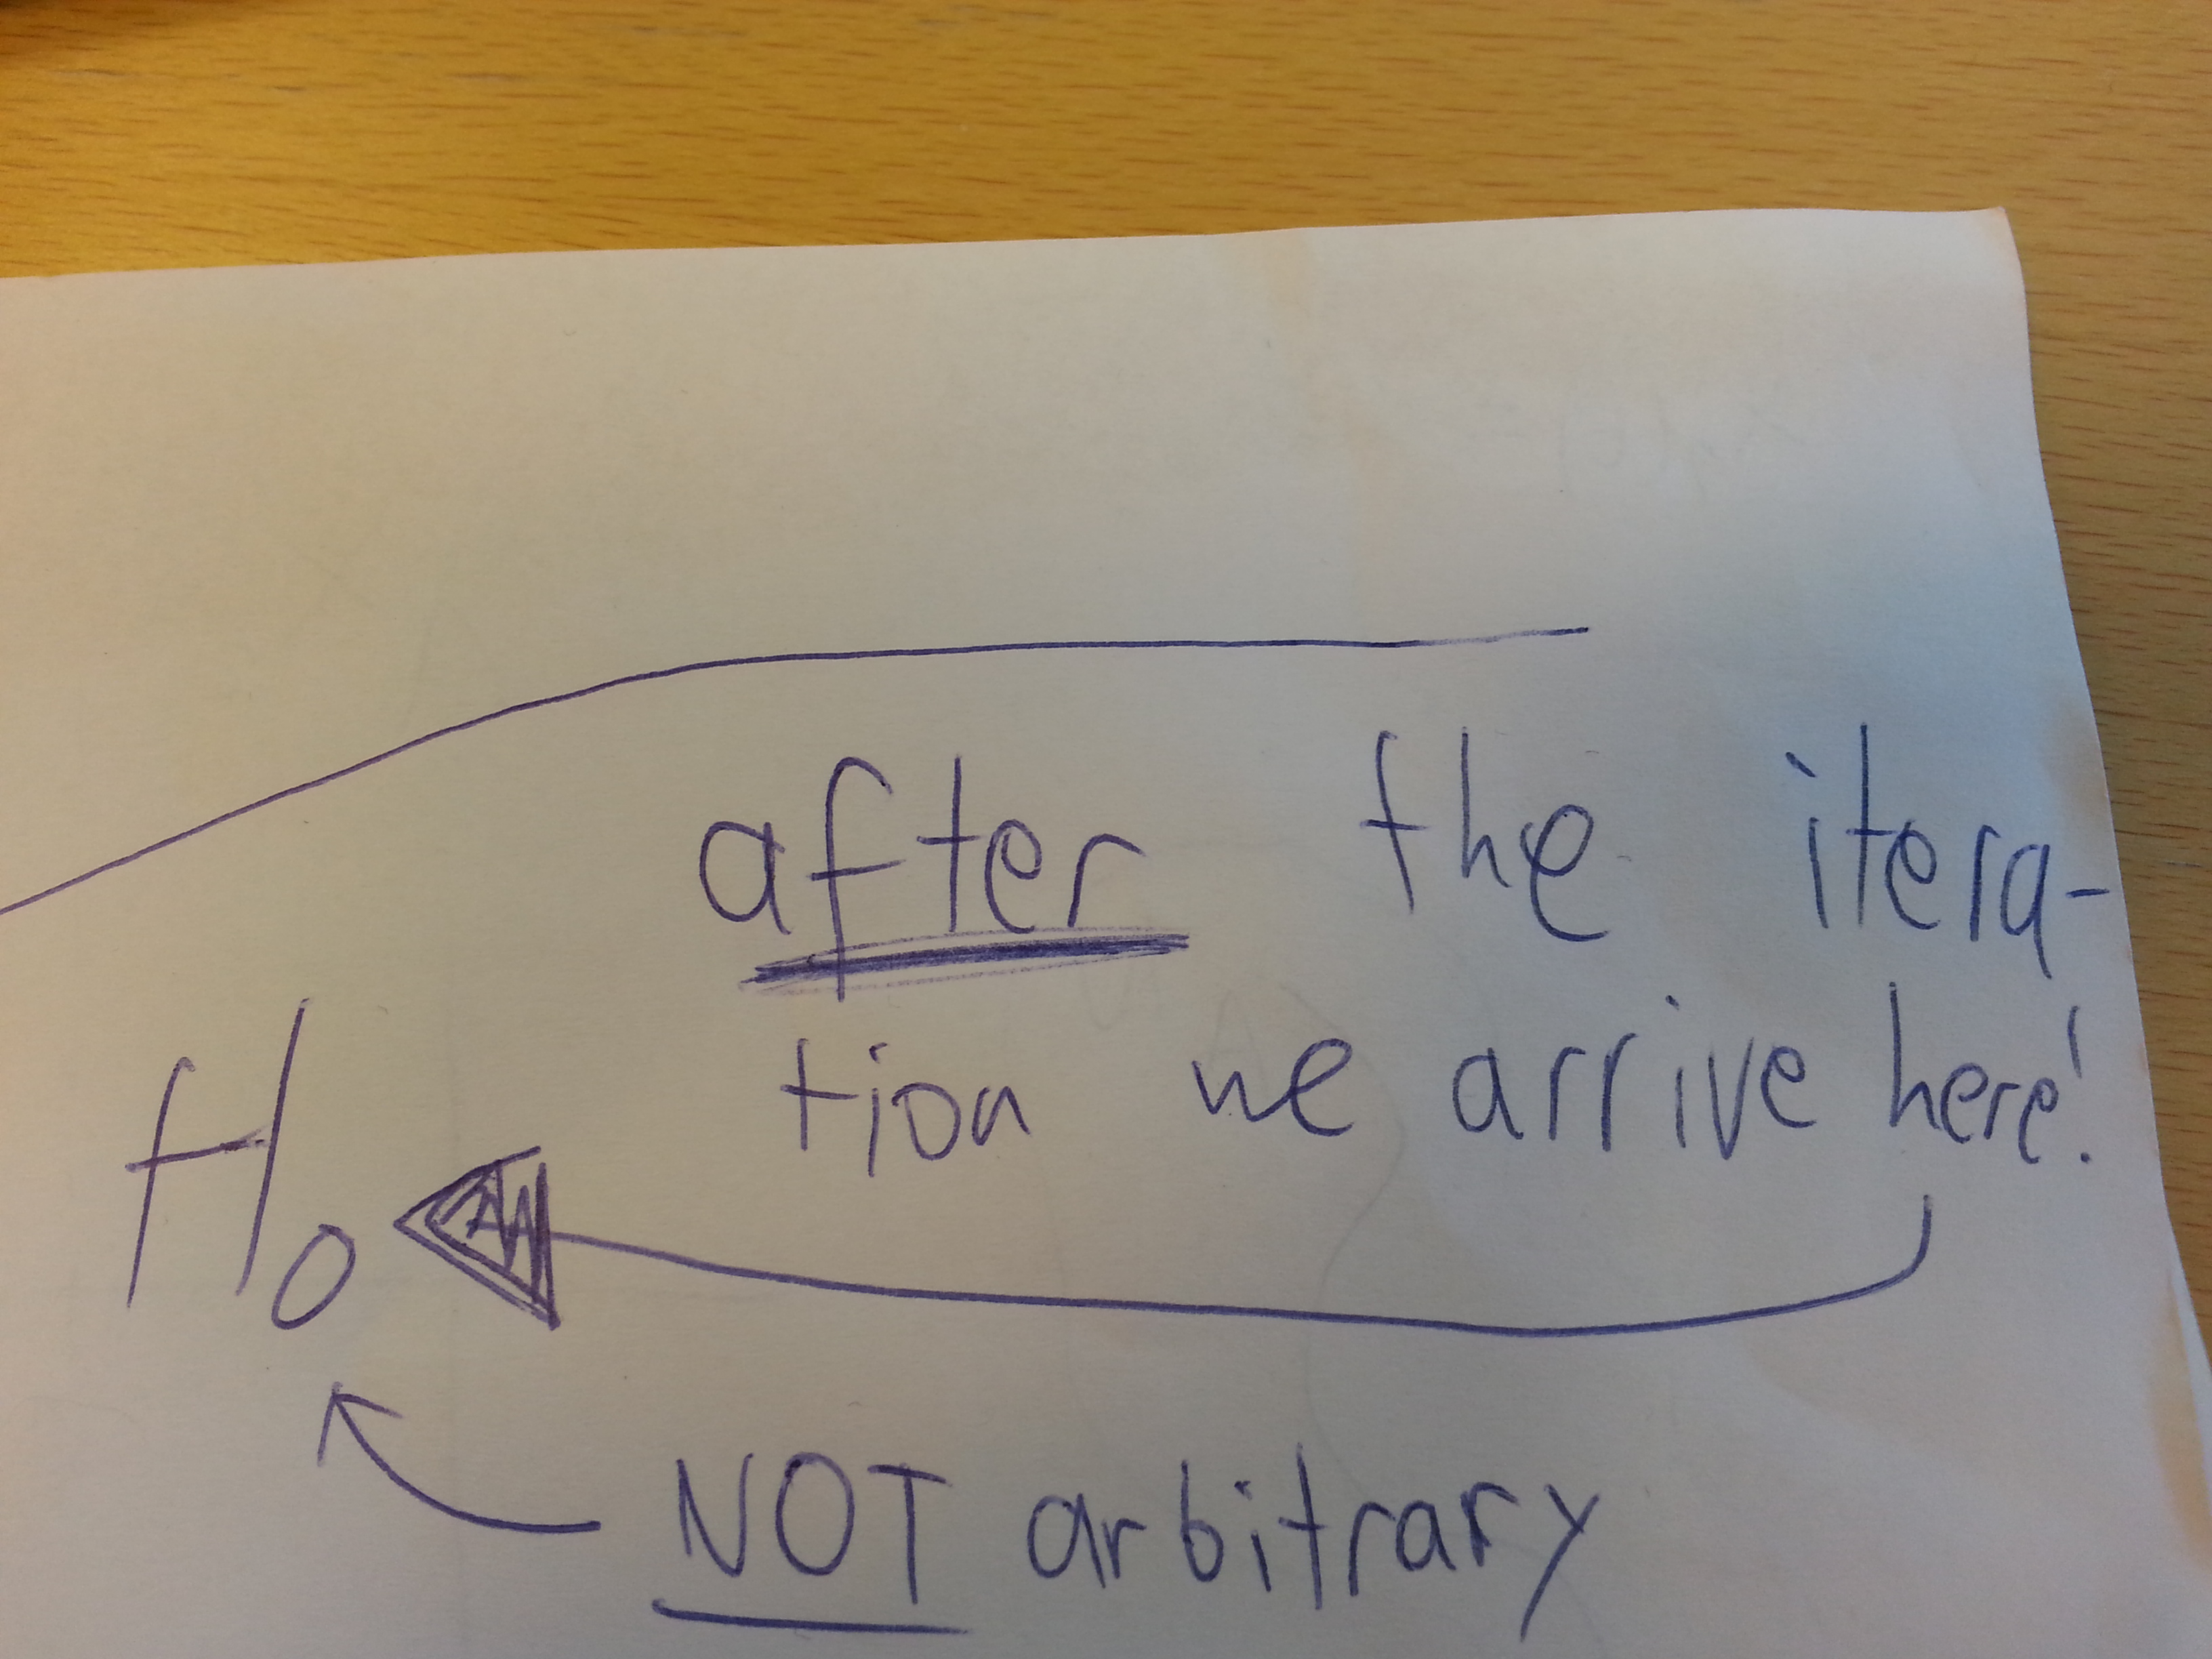 after the itera-
tion we arrive here!
H₀
NOT arbitrary